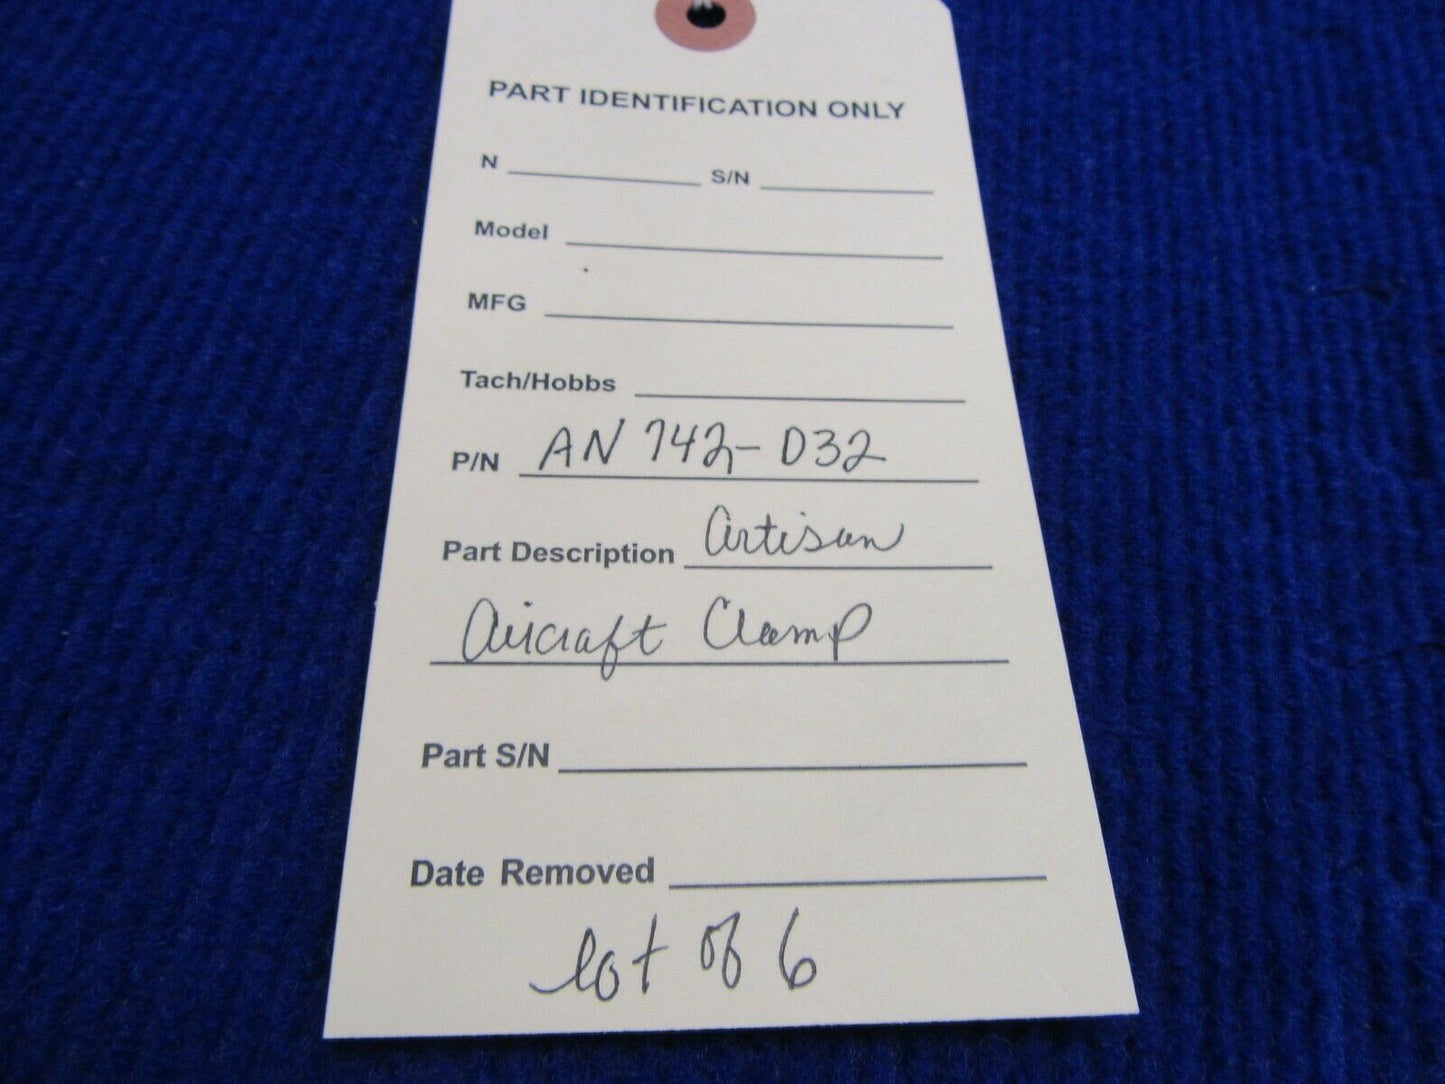 PART IDENTIFICATION ONLY
N S/N
Model
MFG
Tach/Hobbs
P/N AN 742-D32
Part Description Artisan
Aircraft Clamp
Part S/N
Date Removed
lot of 6